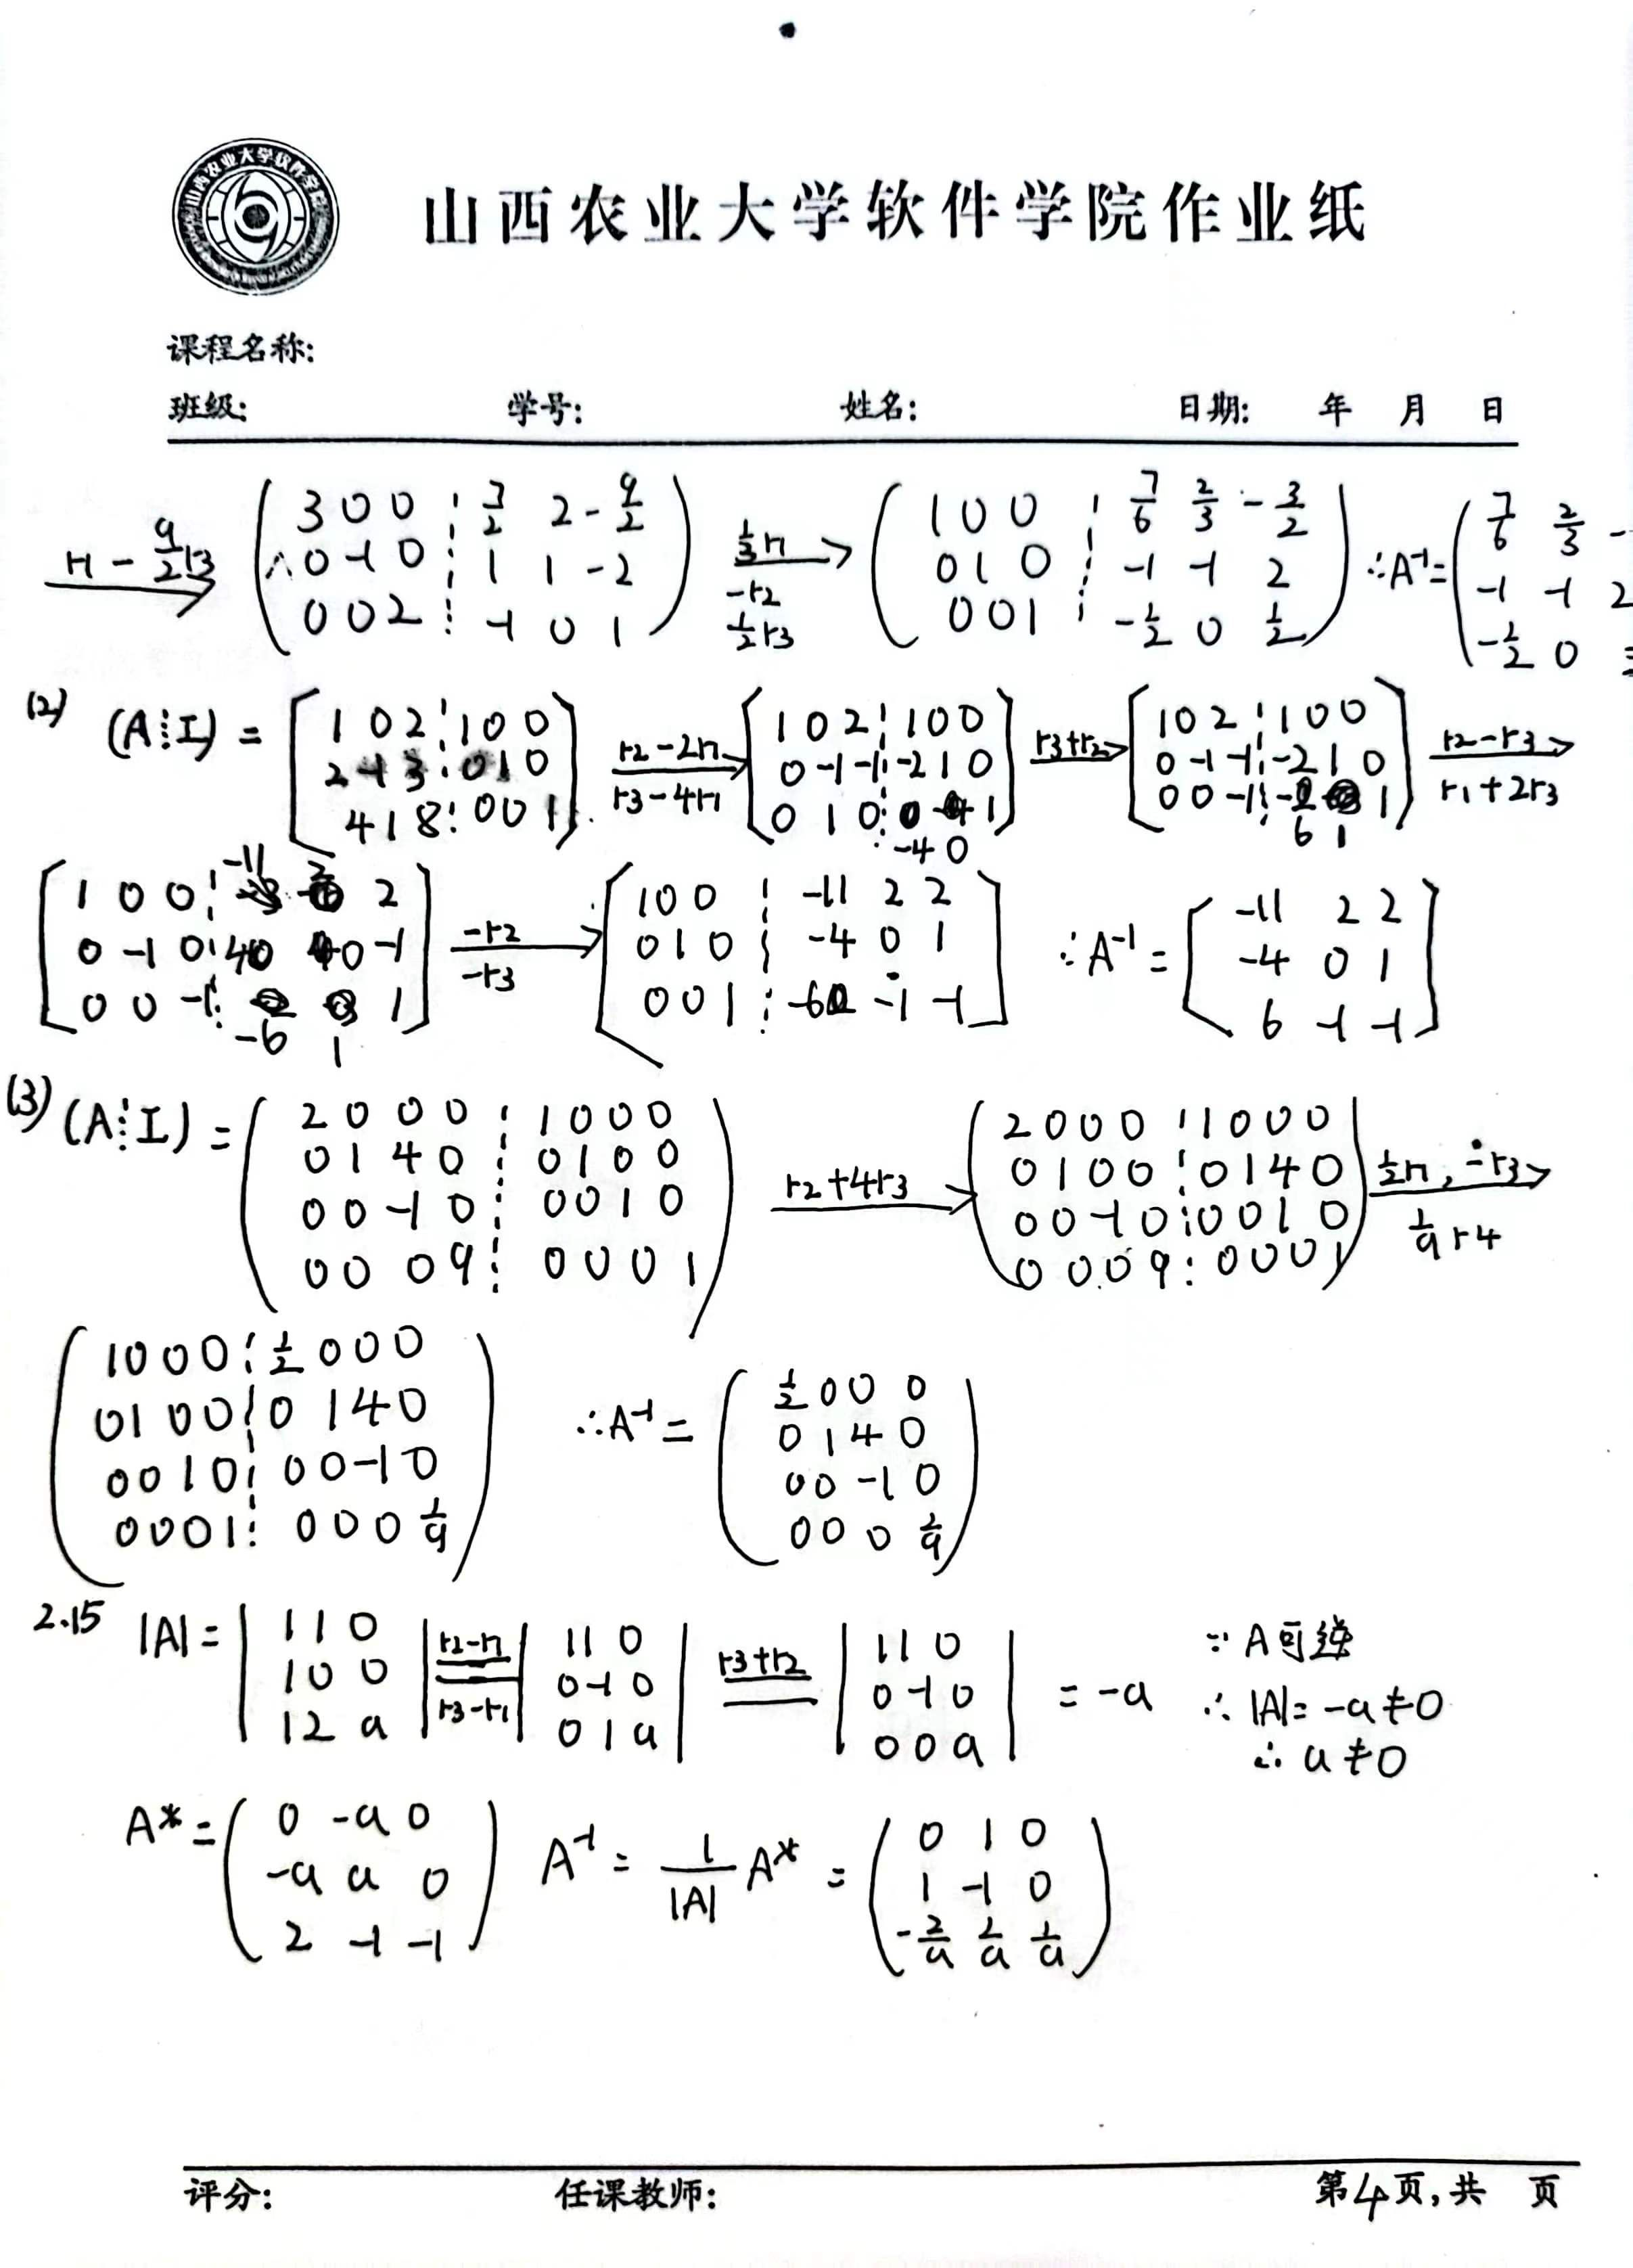 山西农业大学软件学院
山西农业大学软件学院作业纸
课程名称:
班级: 学号: 姓名: 日期: 年 月 日
r1 - 9/2 r3 → ( 3 0 0 ⋮ 7/2 2 -9/2 ; 0 -1 0 ⋮ 1 1 -2 ; 0 0 2 ⋮ -1 0 1 ) 1/3 r1, -r2, 1/2 r3 → ( 1 0 0 ⋮ 7/6 2/3 -3/2 ; 0 1 0 ⋮ -1 -1 2 ; 0 0 1 ⋮ -1/2 0 1/2 ) ∴A⁻¹= ( 7/6 2/3 - ; -1 -1 2 ; -1/2 0
(2) (A⋮I) = [ 1 0 2 ⋮ 1 0 0 ; 2 -1 3 ⋮ 0 1 0 ; 4 1 8 ⋮ 0 0 1 ] r2-2r1, r3-4r1 → [ 1 0 2 ⋮ 1 0 0 ; 0 -1 -1 ⋮ -2 1 0 ; 0 1 0 ⋮ -4 0 1 ] r3+r2 → [ 1 0 2 ⋮ 1 0 0 ; 0 -1 -1 ⋮ -2 1 0 ; 0 0 -1 ⋮ -6 1 1 ] r2-r3, r1+2r3 →
[ 1 0 0 ⋮ -11 2 2 ; 0 -1 0 ⋮ 4 0 -1 ; 0 0 -1 ⋮ -6 1 1 ] -r2, -r3 → [ 1 0 0 ⋮ -11 2 2 ; 0 1 0 ⋮ -4 0 1 ; 0 0 1 ⋮ -6 -1 -1 ] ∴A⁻¹ = [ -11 2 2 ; -4 0 1 ; 6 -1 -1 ]
(3) (A⋮I) = ( 2 0 0 0 ⋮ 1 0 0 0 ; 0 1 4 0 ⋮ 0 1 0 0 ; 0 0 -1 0 ⋮ 0 0 1 0 ; 0 0 0 9 ⋮ 0 0 0 1 ) r2+4r3 → ( 2 0 0 0 ⋮ 1 0 0 0 ; 0 1 0 0 ⋮ 0 1 4 0 ; 0 0 -1 0 ⋮ 0 0 1 0 ; 0 0 0 9 ⋮ 0 0 0 1 ) 1/2 r1, -r3, 1/9 r4 →
( 1 0 0 0 ⋮ 1/2 0 0 0 ; 0 1 0 0 ⋮ 0 1 4 0 ; 0 0 1 0 ⋮ 0 0 -1 0 ; 0 0 0 1 ⋮ 0 0 0 1/9 ) ∴A⁻¹ = ( 1/2 0 0 0 ; 0 1 4 0 ; 0 0 -1 0 ; 0 0 0 1/9 )
2.15 |A| = | 1 1 0 ; 1 0 0 ; 1 2 a | r2-r1, r3-r1 = | 1 1 0 ; 0 -1 0 ; 0 1 a | r3+r2 = | 1 1 0 ; 0 -1 0 ; 0 0 a | = -a
∵ A可逆
∴ |A|= -a≠0
∴ a≠0
A* = ( 0 -a 0 ; -a a 0 ; 2 -1 -1 ) A⁻¹ = 1/|A| A* = ( 0 1 0 ; 1 -1 0 ; -2/a 1/a 1/a )
评分: 任课教师: 第4页,共 页